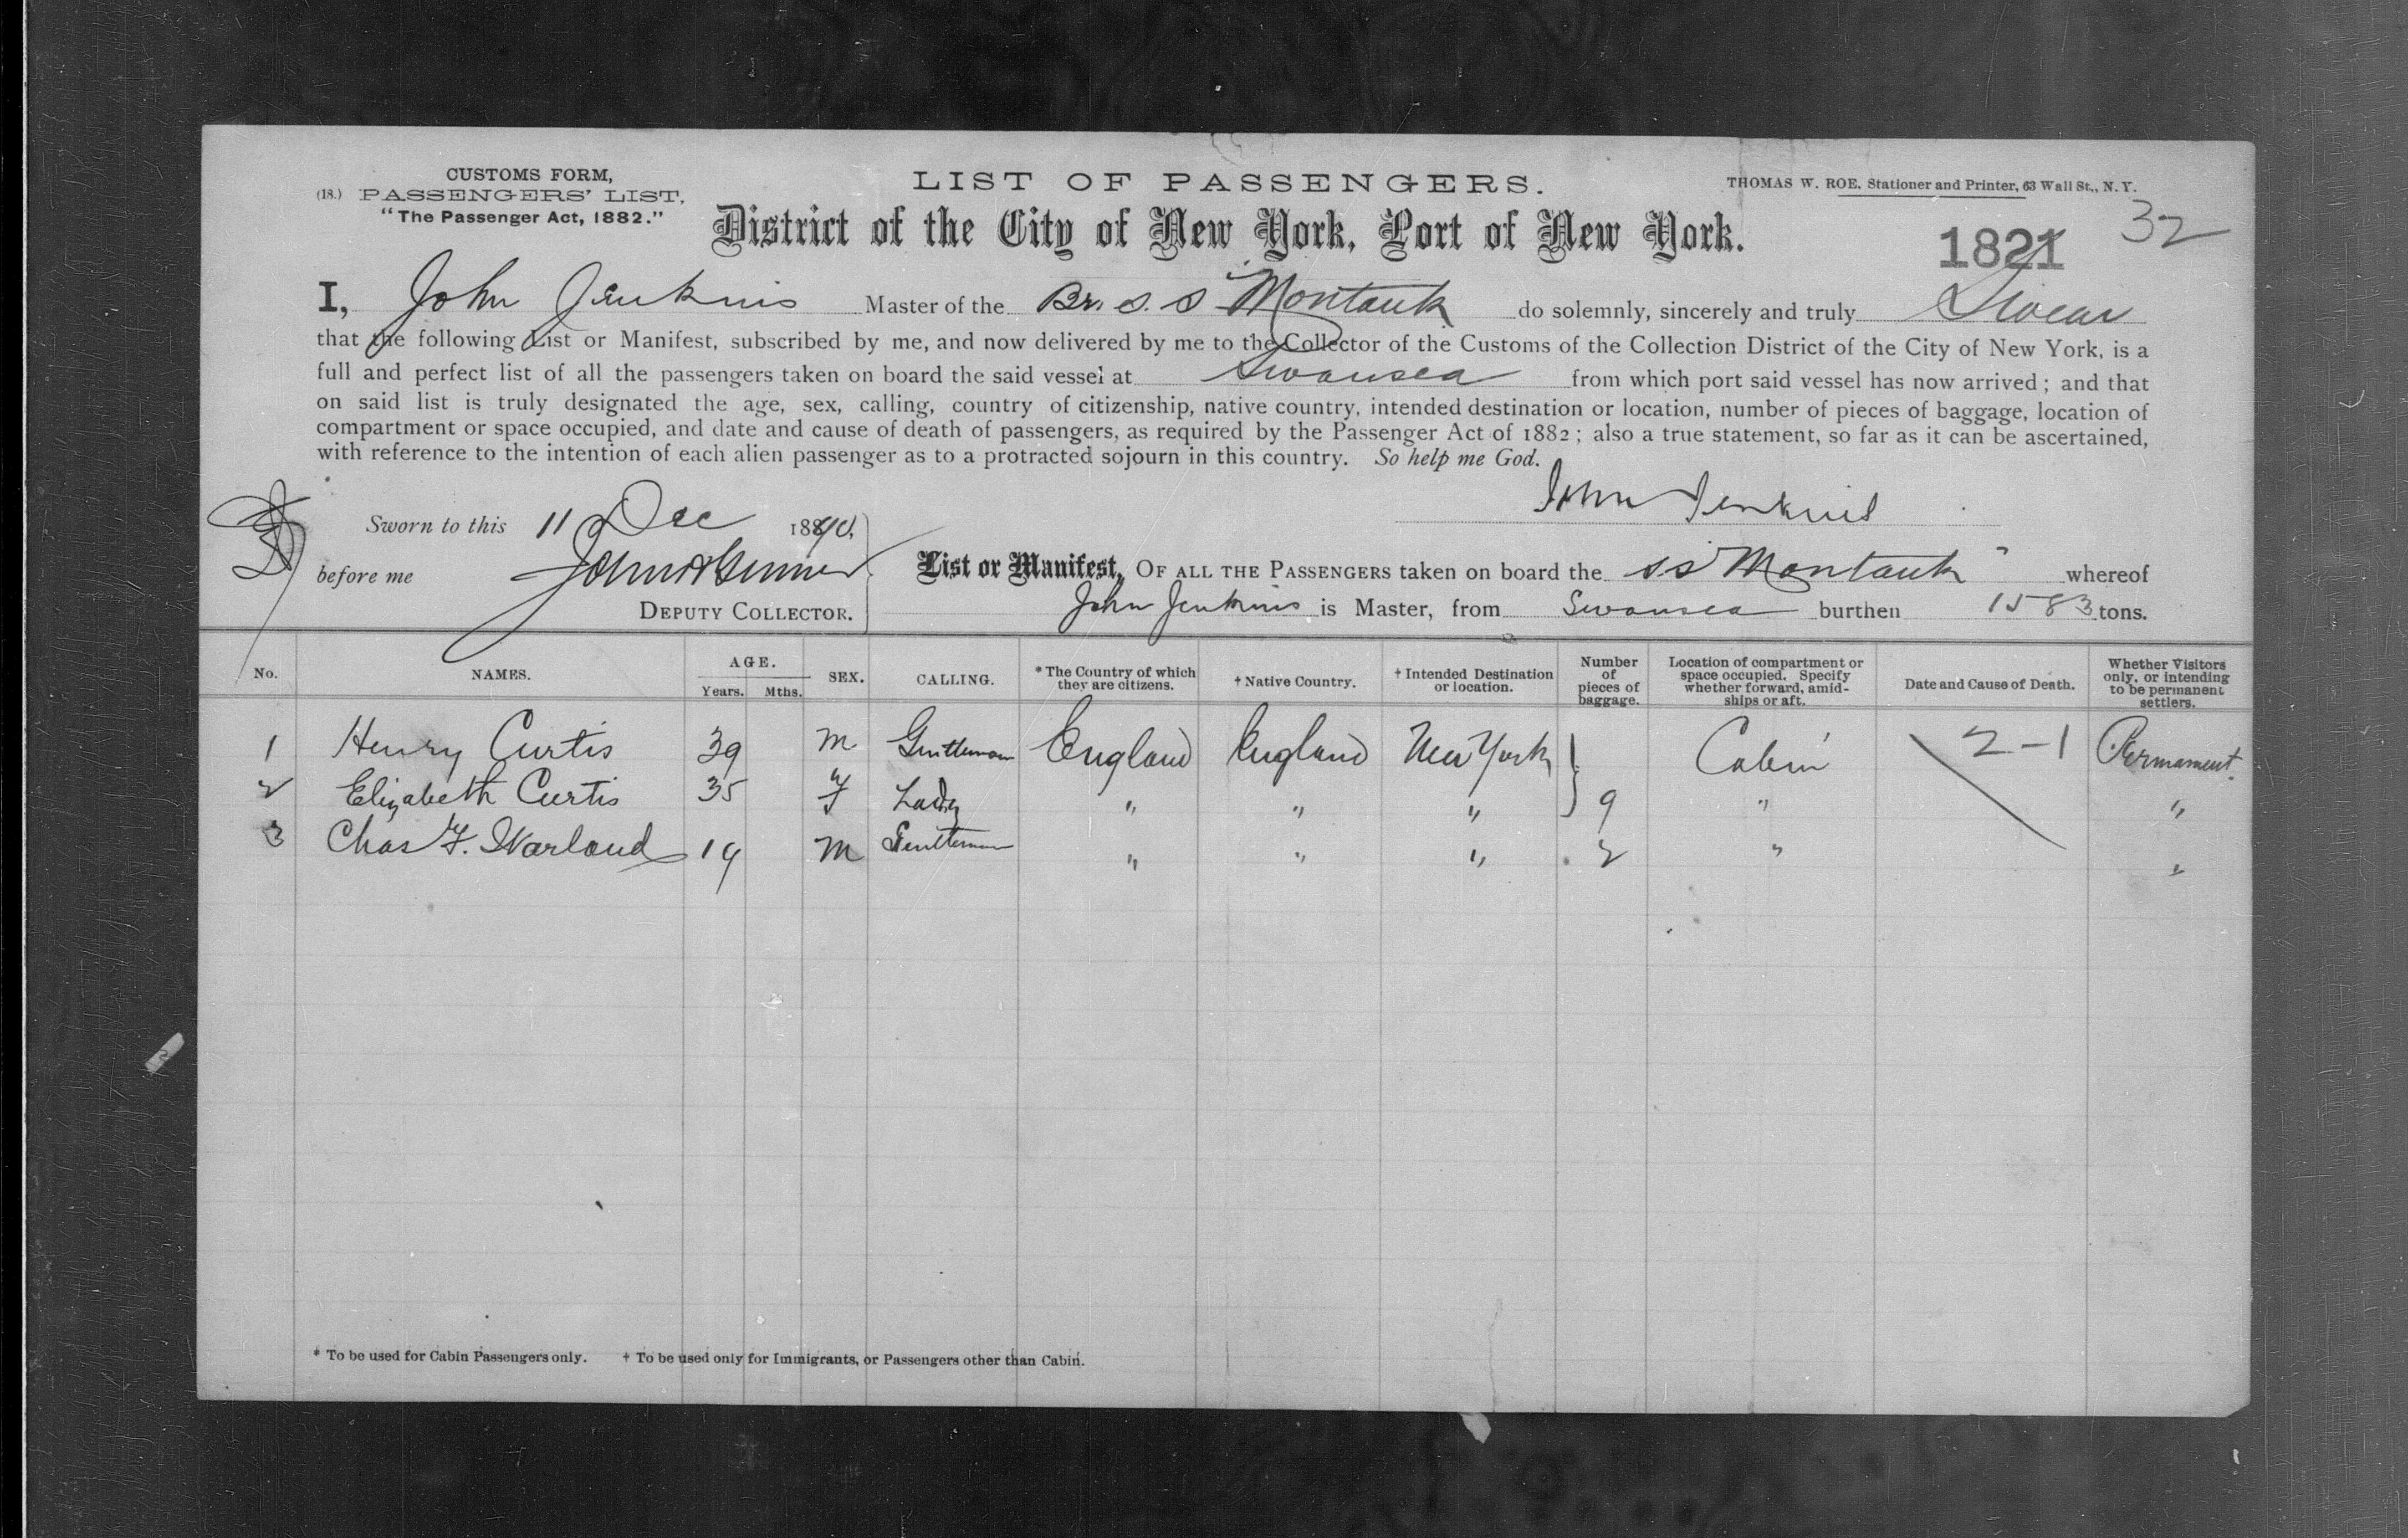 CUSTOMS FORM,
(18.) PASSENGERS' LIST,
"The Passenger Act, 1882."
LIST OF PASSENGERS.
THOMAS W. ROE, Stationer and Printer, 63 Wall St., N.Y.
District of the City of New York, Port of New York.
1821 32
I, John Jenkins Master of the Br. S. S "Montauk do solemnly, sincerely and truly Swear
that the following List or Manifest, subscribed by me, and now delivered by me to the Collector of the Customs of the Collection District of the City of New York, is a
full and perfect list of all the passengers taken on board the said vessel at Swansea from which port said vessel has now arrived; and that
on said list is truly designated the age, sex, calling, country of citizenship, native country, intended destination or location, number of pieces of baggage, location of
compartment or space occupied, and date and cause of death of passengers, as required by the Passenger Act of 1882; also a true statement, so far as it can be ascertained,
with reference to the intention of each alien passenger as to a protracted sojourn in this country. So help me God.
John Jenkins
Sworn to this 11 Dec 1890,
before me
DEPUTY COLLECTOR.
List or Manifest, OF ALL THE PASSENGERS taken on board the SS "Montauk" whereof
John Jenkins is Master, from Swansea burthen 1583 tons.
No. NAMES. AGE. Years. Mths. SEX. CALLING. * The Country of which they are citizens. † Native Country. † Intended Destination or location. Number of pieces of baggage. Location of compartment or space occupied. Specify whether forward, amidships or aft. Date and Cause of Death. Whether Visitors only, or intending to be permanent settlers.
1 Henry Curtis 39 M Gentleman England England New York Cabin 2-1 Permament.
2 Elizabeth Curtis 35 F Lady " " " 9 " "
3 Chas F. Warland 19 M Gentleman " " " 2 " "
* To be used for Cabin Passengers only. † To be used only for Immigrants, or Passengers other than Cabin.